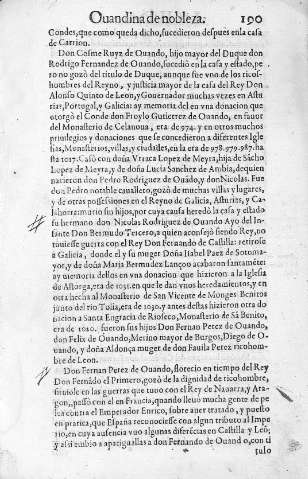 Ouandina de nobleza. 190
Condes, que como queda dicho, sucedieron despues en la casa
de Carrion.
Don Cosme Ruyz de Ouando, hijo mayor del Duque don
Rodrigo Fernandez de Ouando, sucediò en la casa y estado, pe
ro no gozò del titulo de Duque, aunque fue vno de los ricos
hombres del Reyno, y justicia mayor de la casa del Rey Don
Alonso Quinto de Leon, y Gouernador muchas vezes en Astu
rias, Portugal, y Galicia: ay memoria del en vna donacion que
otorgò el Conde don Froylo Gutierrez de Ouando, en fauor
del Monasterio de Celanoua, era de 974. y en otros muchos
priuilegios y donaciones que se concedieron a diferentes Igle
sias, Monasterios, villas, y ciudades, en la era de 978. 979. 987. ha
sta 1017. Casò con doña Vrraca Lopez de Meyra, hija de Sācho
Lopez de Meyra, y de doña Lucia Sanchez de Ambia, de quien
nacieron don Pedro Rodriguez de Ouādo, y don Nicolas. Fue
don Pedro notable cauallero, gozò de muchas villas y lugares,
y de otras possessiones en el Reyno de Galicia, Asturias, y Ca-
lahorra murio sin hijos, por cuya causa heredò la casa y estado
su hermano don Nicolas Rodriguez de Ouando Ayo del In
fante Don Bermudo Tercero, a quien aconsejò siendo Rey, no
tuuiesse guerra con el Rey Don Fernando de Castilla: retirose
a Galicia, donde el y su muger Doña Isabel Paez de Sotoma-
yor, y de doña Maria Bermudez Lançoo acabaron santamēte:
ay memoria dellos en vna donacion que hizieron a la Iglesia
de Astorga, era de 1031. en que le dan vnos heredamientos, y en
otra hecha al Monasterio de San Vicente de Monges Benitos
junto del rio Tolia, era de 1030. y antes destas hizieron otra do
nacion a Santa Engracia de Rioseco, Monasterio de Sā Benito,
era de 1020. fueron sus hijos Don Fernan Perez de Ouando,
don Felix de Ouando, Merino mayor de Burgos, Diego de O-
uando, y doña Aldonça muger de don Fauila Perez ricohom-
bre de Leon.
Don Fernan Perez de Ouando, florecio en tiempo del Rey
Don Fernādo el Primero, gozò de la dignidad de ricohombre,
siruiole en las guerras que tuuo con el Rey de Nauarra, y Ara-
gon, passò con el en Francia, quando lleuò mucha gente de pe
lea contra el Emperador Enrico, sobre auer tratado, y puesto
en pratica, que España reconociesse con algun tributo al Impe-
rio, en cuya ausencia vuo algunas diferēcias en Castilla y Leō;
y assi embio a apaziguallas a don Fernando de Ouando, con ti
tulo